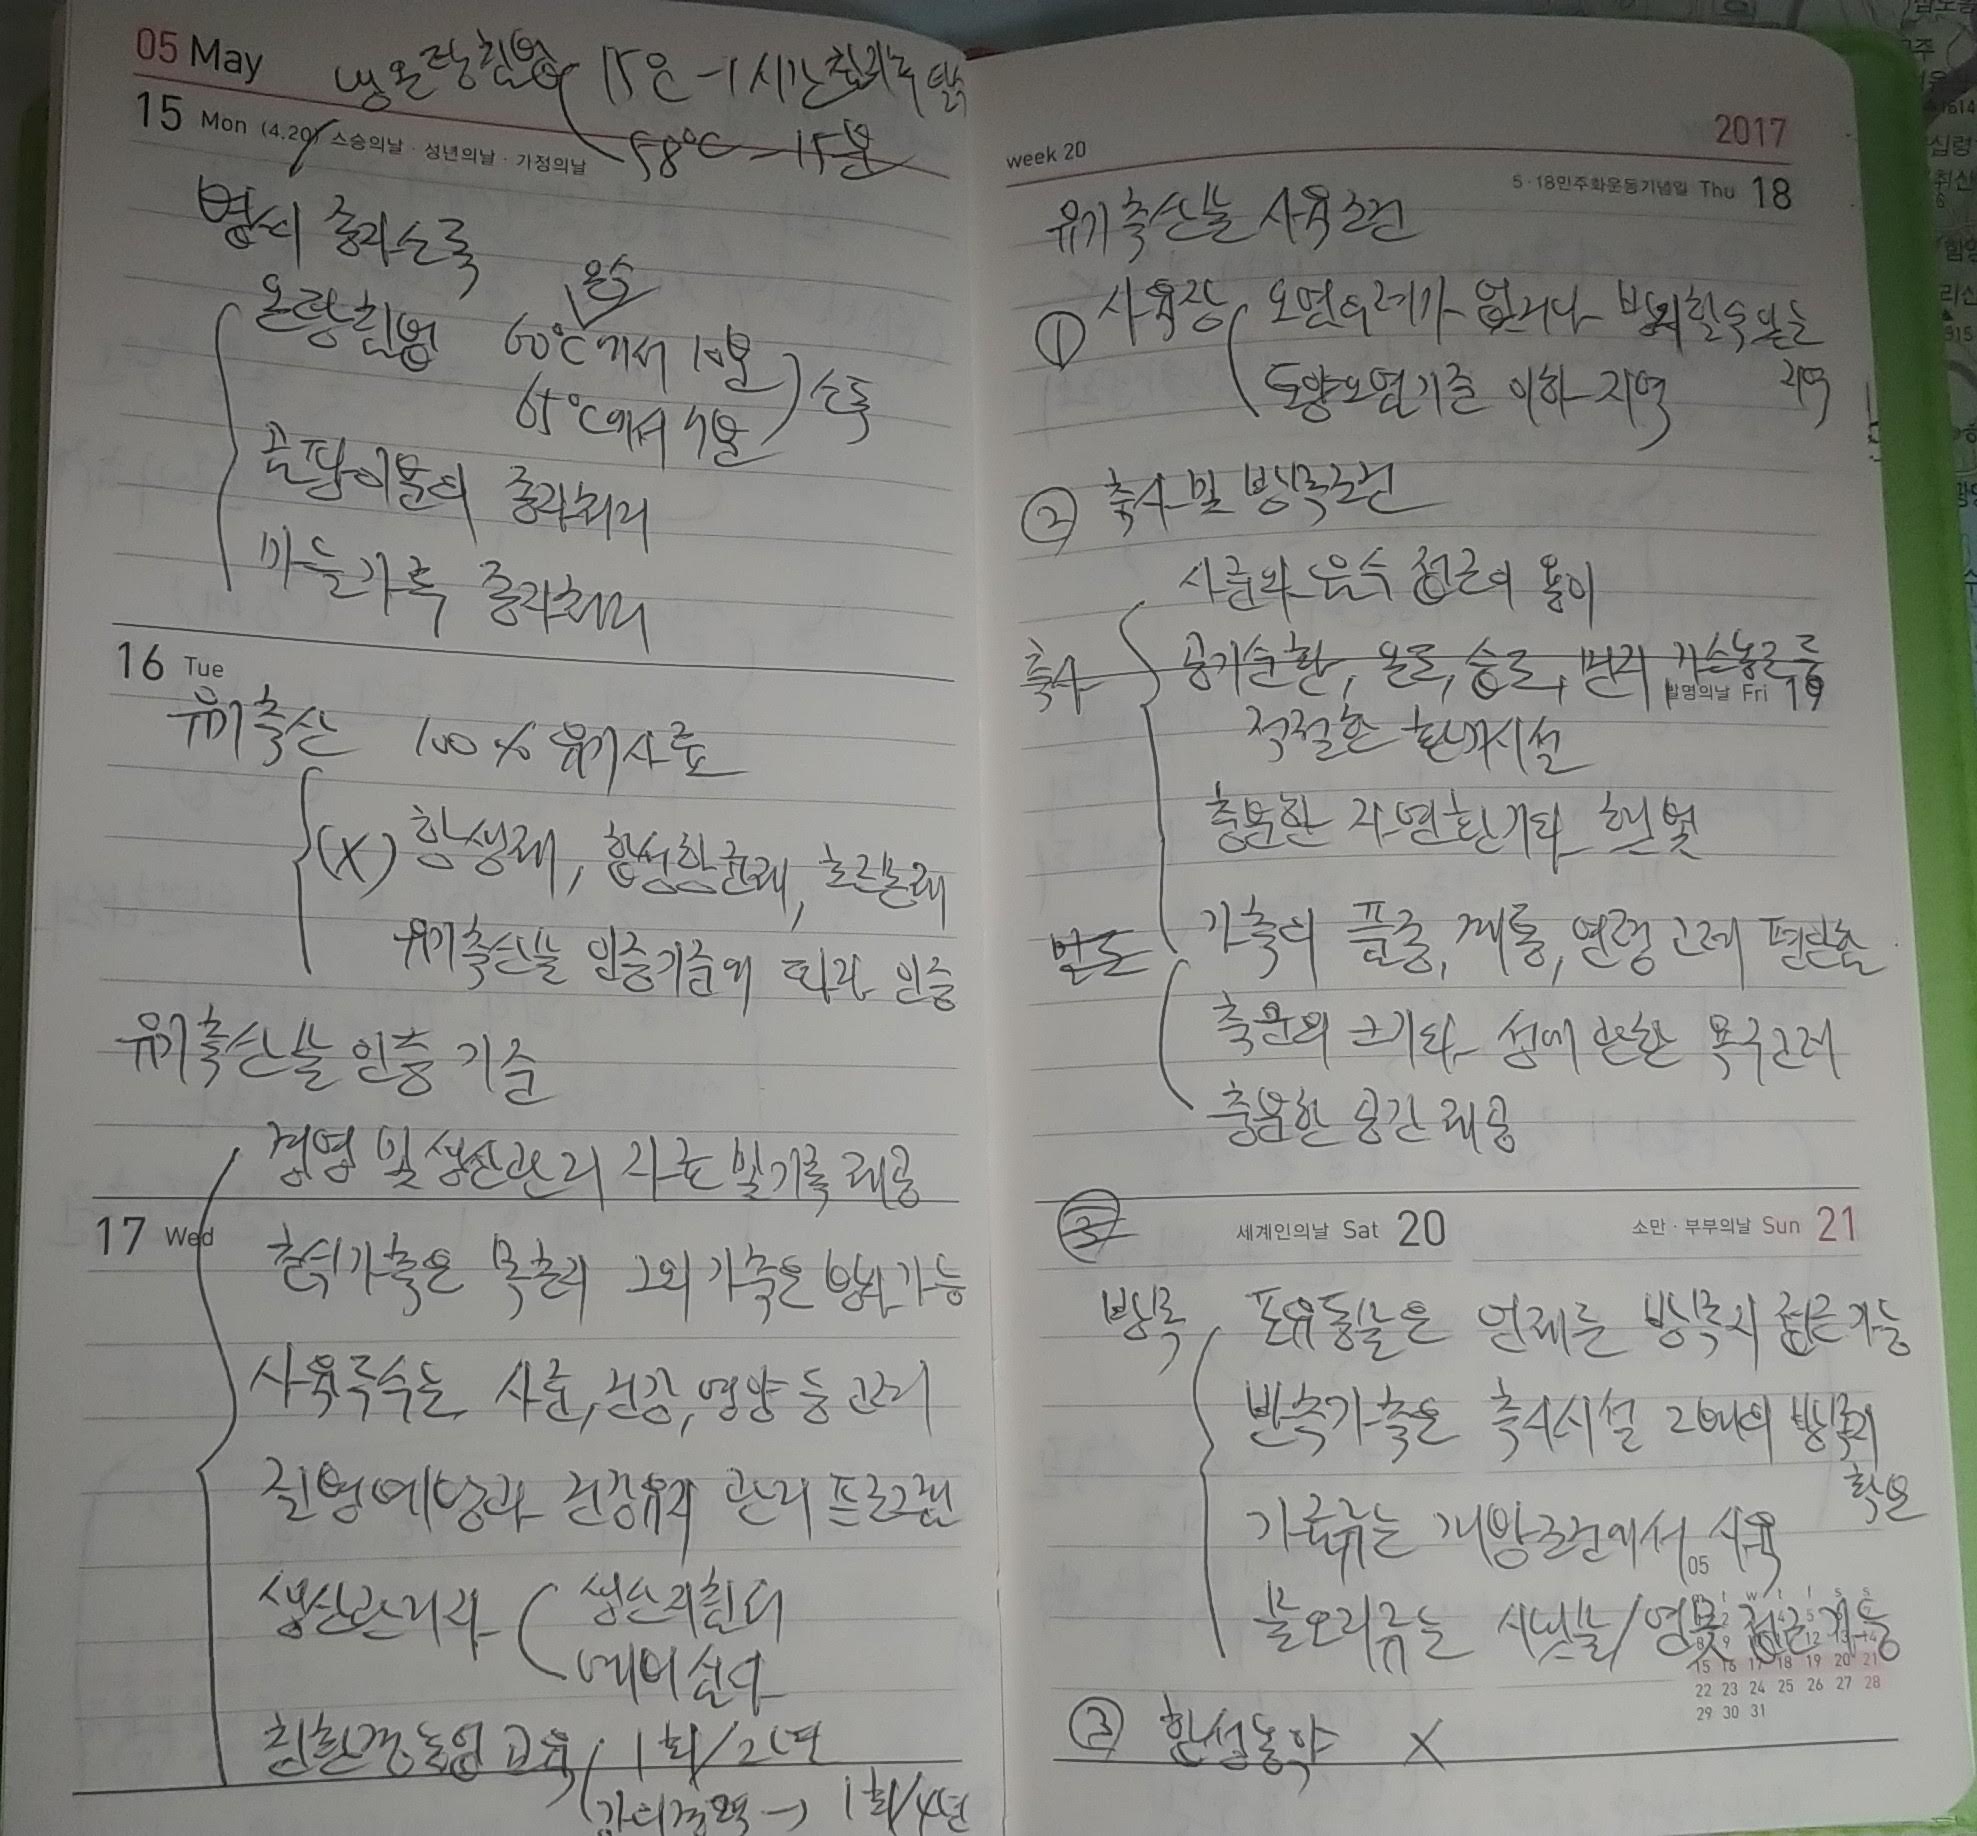 05 May
냉온탕침법 15온 - 1시간
58℃ - 15분
15 Mon (4.20) 스승의날 · 성년의날 · 가정의날
볍씨 종자소독
온탕침법 60℃에서 10분
온수
65℃에서 7분 소독
곰팡이문의 종자처리
마늘가루 종자처리
16 Tue
유기축산 100% 유기사료
(X) 항생제, 합성항균제, 호르몬제
유기축산물 인증기준에 따라 인증
유기축산물 인증 기준
경영 및 생산관리 자료 및 기록 제공
17 Wed
초식가축은 목초지 그외 가축은 방사 가능
사육두수는 사료, 건강, 영양 등 고려
질병예방과 건강유지 관리 프로그램
생산관리자 생산지침서
예비심사
친환경농업 교육 1회/2년
→ 1회/4년
week 20
2017
5·18민주화운동기념일 Thu 18
유기축산물 사육조건
① 사육장 오염우려가 없거나 방지할수 있는
지역
토양오염기준 이하 지역
② 축사 및 방목조건
사료와 음수 접근의 용이
축사 공기순환, 온도, 습도, 먼지 가스농도 등
발명의날 Fri 19
적절한 환기시설
충분한 자연환기와 햇빛
밀도 가축의 품종, 계통, 연령 고려 편안함
축군의 크기와 성에 관한 욕구고려
충분한 공간 제공
③
세계인의날 Sat 20
소만 · 부부의날 Sun 21
방목 포유동물은 언제든 방목지 접근가능
반추가축은 축사시설 2배의 방목지
확보
가금류는 개방조건에서 사육
물오리류는 시냇물/연못 접근가능
05
8 9 10 11 12 13 14
15 16 17 18 19 20 21
22 23 24 25 26 27 28
29 30 31
③ 합성농약 X